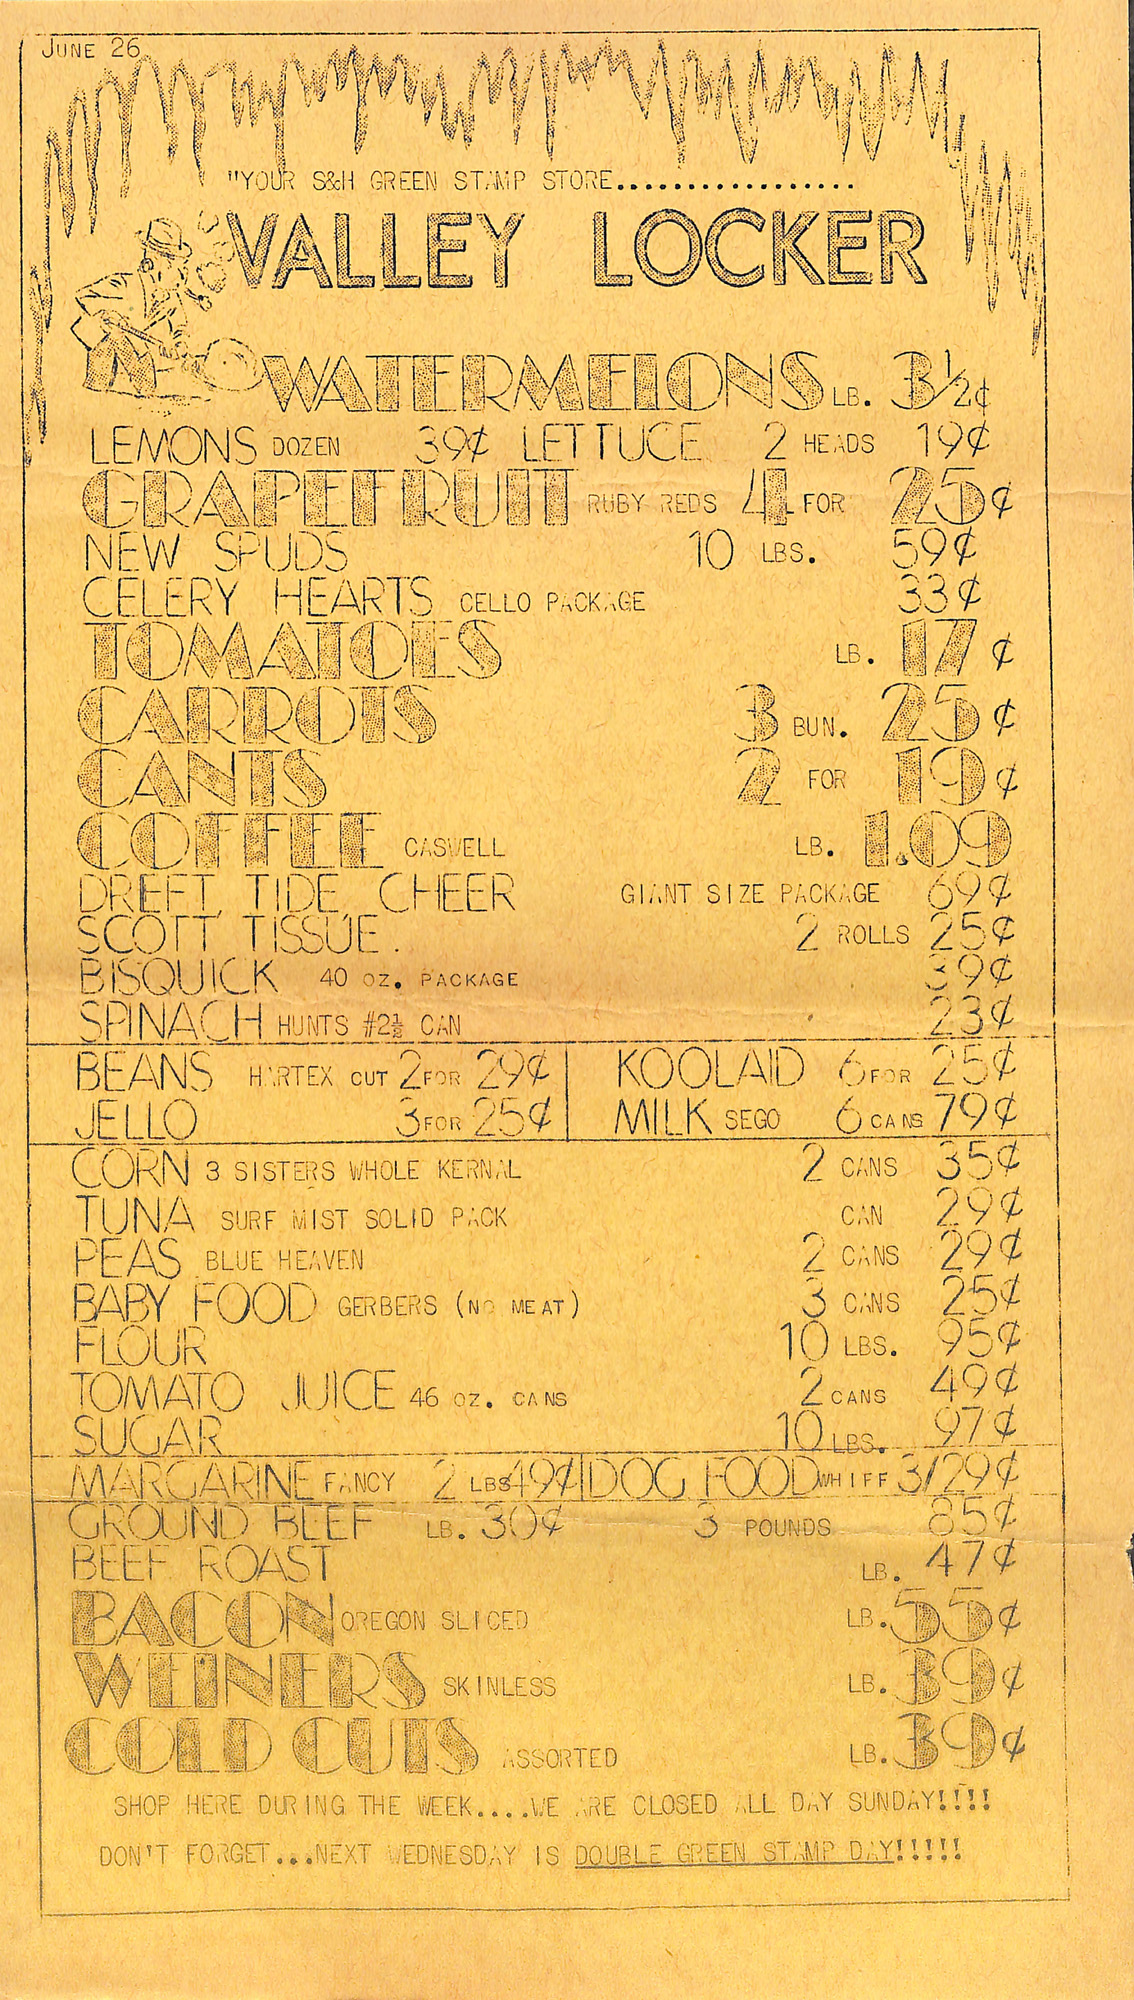 JUNE 26
"YOUR S&H GREEN STAMP STORE.................
VALLEY LOCKER
WATERMELONS LB. 3½¢
LEMONS DOZEN 39¢ LETTUCE 2 HEADS 19¢
GRAPEFRUIT RUBY REDS 4 FOR 25¢
NEW SPUDS 10 LBS. 59¢
CELERY HEARTS CELLO PACKAGE 33¢
TOMATOES LB. 17¢
CARROTS 3 BUN. 25¢
CANTS 2 FOR 19¢
COFFEE CASWELL LB. 1.09
DREFT, TIDE, CHEER GIANT SIZE PACKAGE 69¢
SCOTT TISSUE. 2 ROLLS 25¢
BISQUICK 40 OZ. PACKAGE 39¢
SPINACH HUNTS #2½ CAN 23¢
BEANS HARTEX CUT 2 FOR 29¢ KOOLAID 6 FOR 25¢
JELLO 3 FOR 25¢ MILK SEGO 6 CANS 79¢
CORN 3 SISTERS WHOLE KERNAL 2 CANS 35¢
TUNA SURF MIST SOLID PACK CAN 29¢
PEAS BLUE HEAVEN 2 CANS 29¢
BABY FOOD GERBERS (NO MEAT) 3 CANS 25¢
FLOUR 10 LBS. 95¢
TOMATO JUICE 46 OZ. CANS 2 CANS 49¢
SUGAR 10 LBS. 97¢
MARGARINE FANCY 2 LBS 49¢ DOG FOOD WHIFF 3/29¢
GROUND BEEF LB. 30¢ 3 POUNDS 85¢
BEEF ROAST LB. 47¢
BACON OREGON SLICED LB. 55¢
WEINERS SKINLESS LB. 39¢
COLD CUTS ASSORTED LB. 39¢
SHOP HERE DURING THE WEEK....WE ARE CLOSED ALL DAY SUNDAY!!!!
DON'T FORGET...NEXT WEDNESDAY IS DOUBLE GREEN STAMP DAY!!!!!